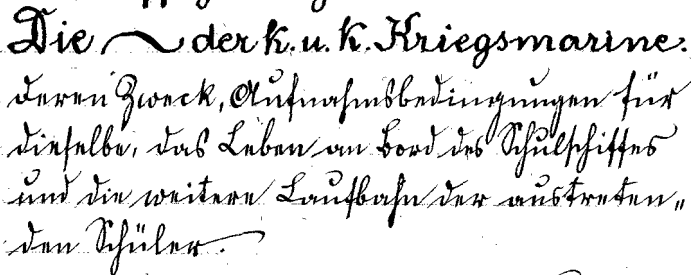 Die ~ der k. u. k. Kriegsmarine:
deren Zweck, Aufnahmsbedingungen für
dieselbe, das Leben an Bord des Schulschiffes
und die weitere Laufbahn der austreten„
den Schüler.